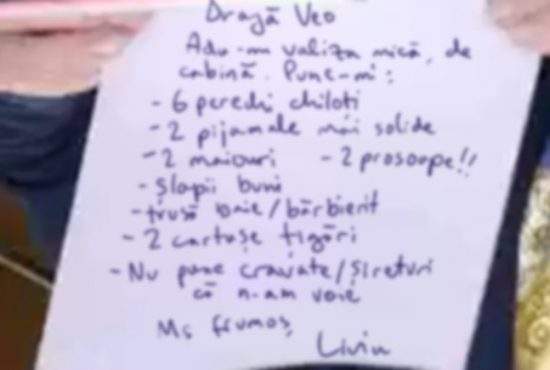 Dragă Veo
Adu-mi valiza mică, de
cabină. Pune-mi:
- 6 perechi chiloți
- 2 pijamale mai solide
- 2 maiouri - 2 prosoape!!
- șlapii buni
- trusă baie/bărbierit
- 2 cartușe țigări
- Nu pune cravate/șireturi
că n-am voie
Ms frumos,
Liviu